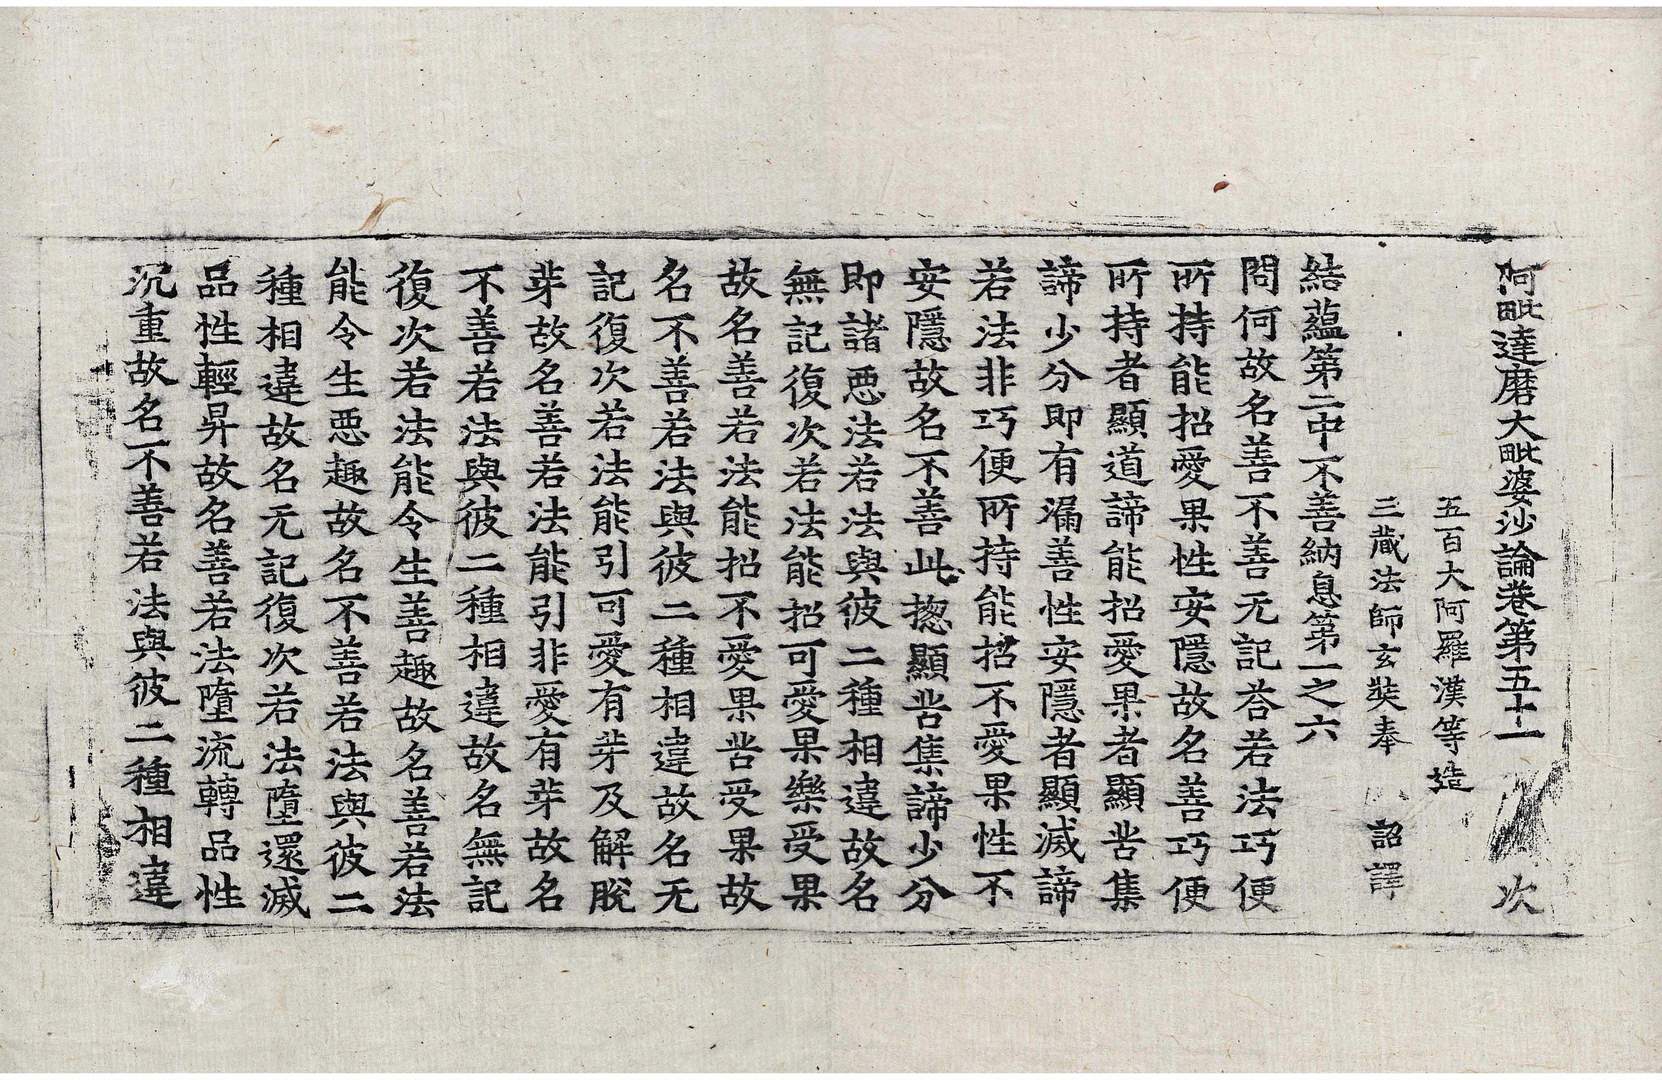 阿毗達磨大毗婆沙論卷第五十一　次
五百大阿羅漢等造
三藏法師玄奘奉　詔譯
結蘊第二中不善納息第一之六
問何故名善不善无記荅若法巧便
所持能招愛果性安隱故名善巧便
所持者顯道諦能招愛果者顯苦集
諦少分即有漏善性安隱者顯滅諦
若法非巧便所持能招不愛果性不
安隱故名不善此揔顯苦集諦少分
即諸惡法若法與彼二種相違故名
無記復次若法能招可愛果樂受果
故名善若法能招不愛果苦受果故
名不善若法與彼二種相違故名无
記復次若法能引可愛有芽及解脫
芽故名善若法能引非愛有芽故名
不善若法與彼二種相違故名無記
復次若法能令生善趣故名善若法
能令生惡趣故名不善若法與彼二
種相違故名无記復次若法墮還滅
品性輕昇故名善若法墮流轉品性
沉重故名不善若法與彼二種相違